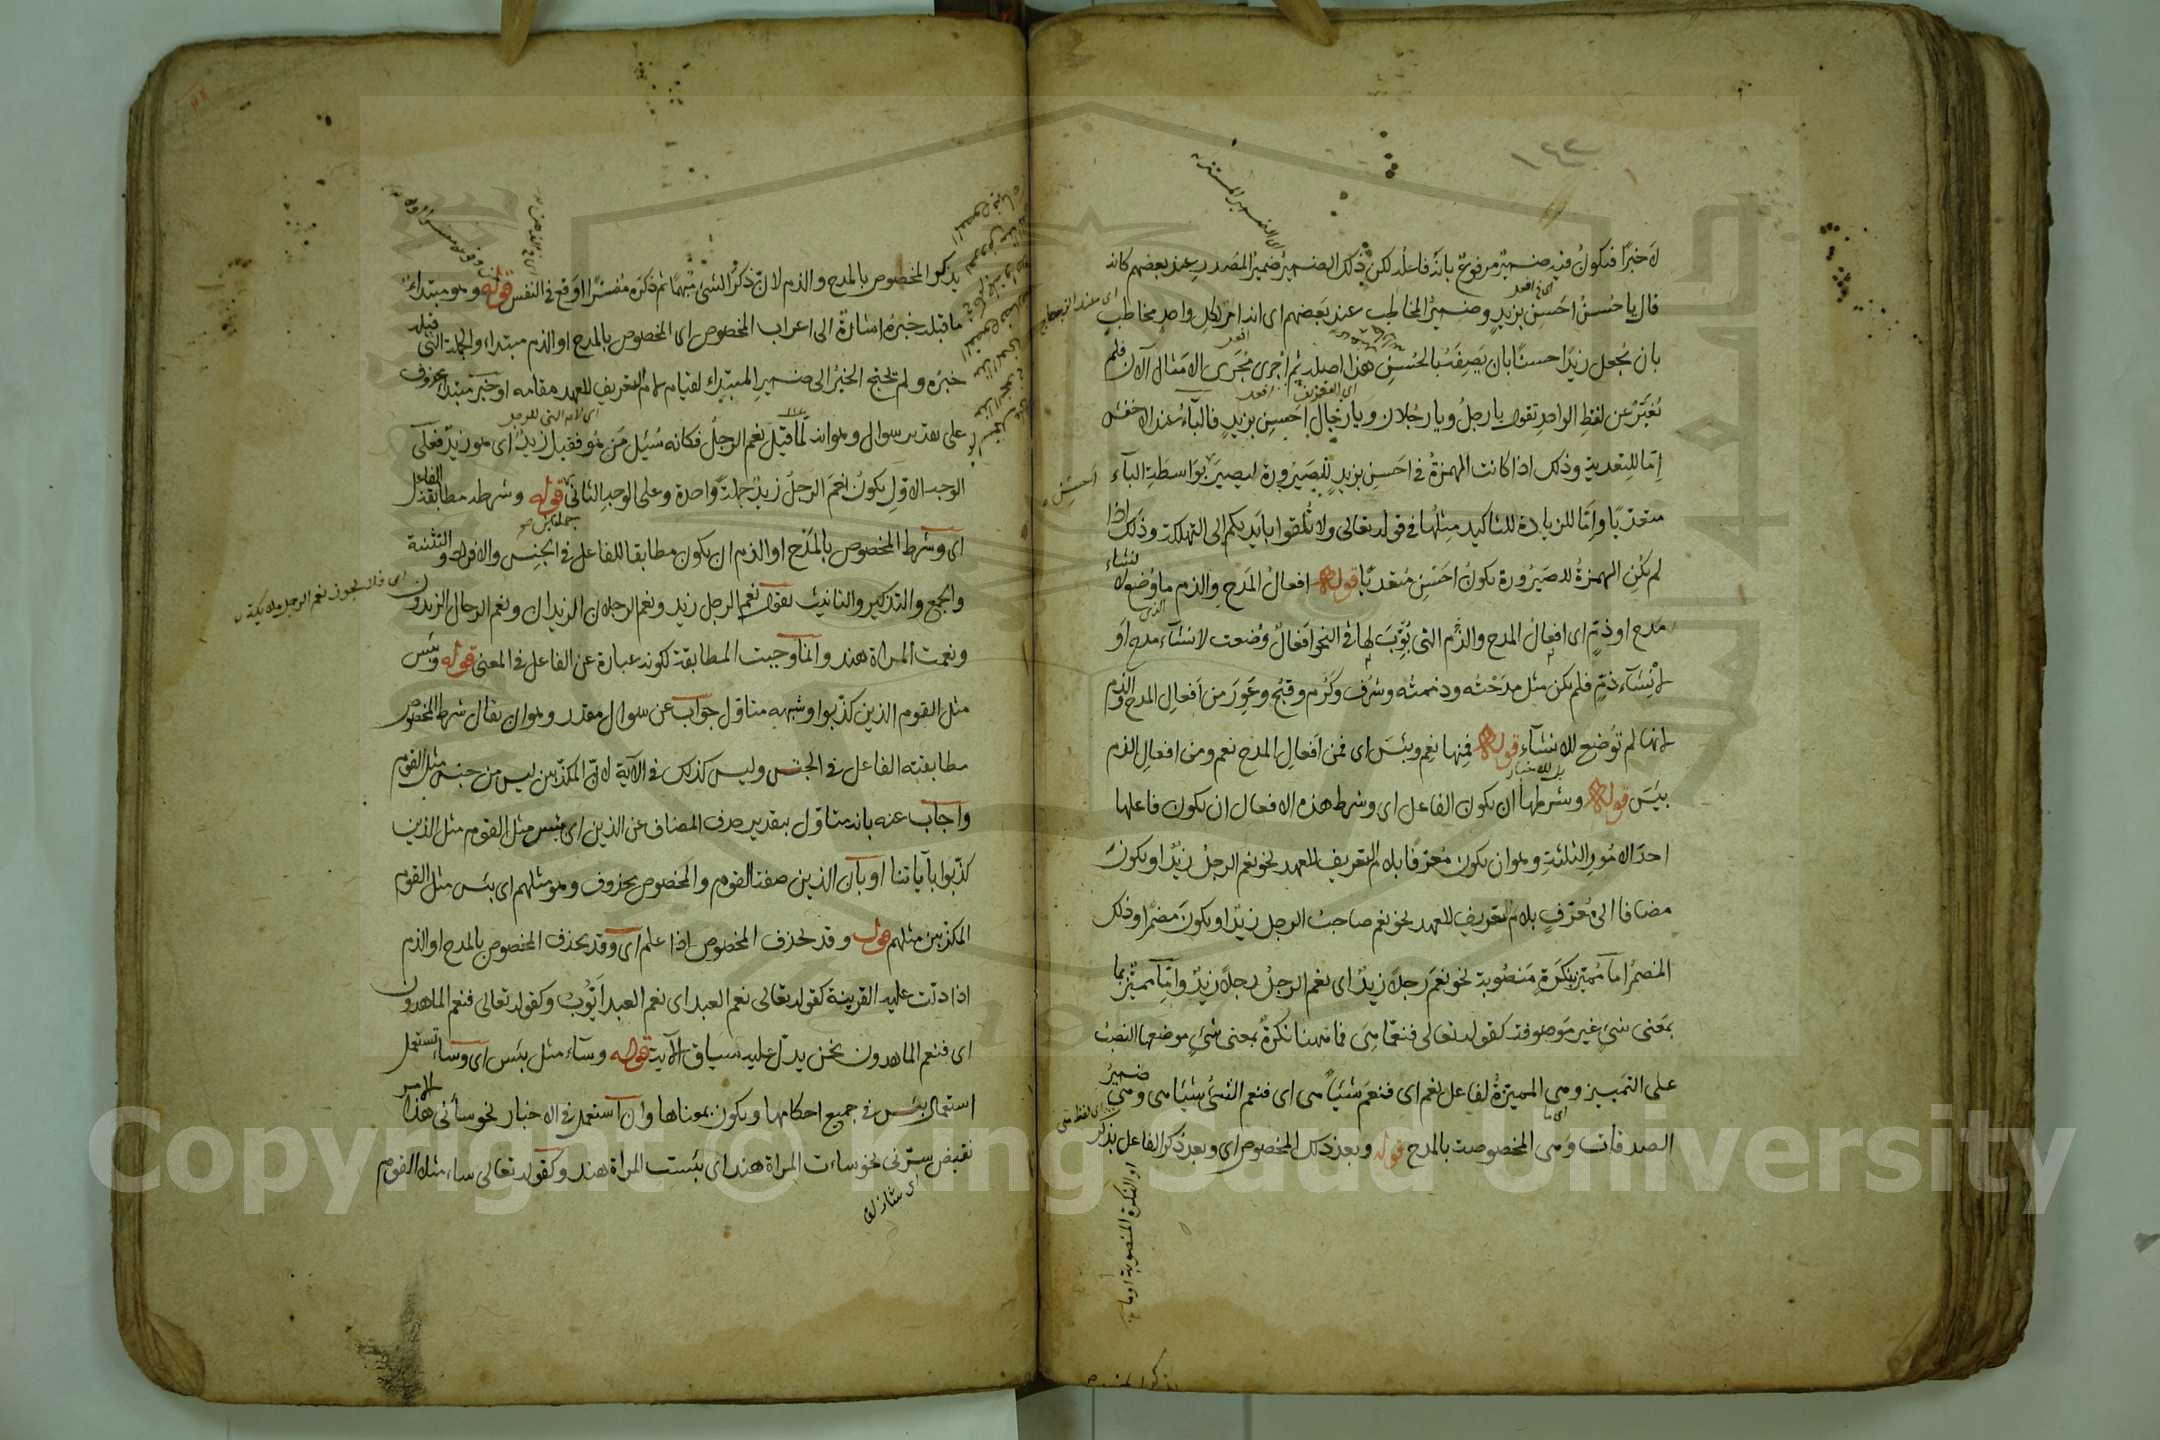 ١٤٢
لا خبرًا فيكون فيه ضميرٌ مرفوعٌ بانه فاعله لكن ذلك الضميرُ ضميرُ المصدر عند بعضهم كانه
قال يا حُسنُ احسِن بزيدٍ وضميرُ المخاطب عند بعضهم اى انه امرٌ لكل واحدٍ مخاطبٍ
بان يُجعل زيدًا حسنًا بان يَصِفَهُ بالحُسن هذا اصله ثم اُجرى مُجرَى الامثال الان فلم
يُغيَّر عن لفظِ الواحدِ تقول يا رجلُ ويا رجُلان ويا رجالُ احسِن بزيدٍ فالباءُ عند الاخفش
اِمّا للتعدية وذلك اذا كانت الهمزةُ فى احسن بزيدٍ للصيرُورة ليصيرَ بواسطةِ الباء
متعدّيًا وامّا للزيادة للتاكيد مثلُها فى قوله تعالى ولا تُلقوا بايديكم الى التهلكة وذلك اذا
لم تكن الهمزةُ للصيرُورة يكونُ احسِن مُتعدّيًا قوله افعالُ المَدح والذم ما وُضع لانشاء
مَدح او ذمّ اى افعالُ المدح والذّم التى بُوّبَ لها فى النحو افعالٌ وُضعت لانشآء مدح او
لانشآء ذمّ فلم يكن مثل مدحته وذممتُه وشرُف وكَرُم وقبُح وعَوِرَ من افعالِ المدح والذم
لانها لم تُوضع للانشآء قوله فمنها نِعم وبئسَ اى فمن افعالِ المدح نعم ومن افعالِ الذم
بئسَ قوله وشرطها ان يكون الفاعل اى وشرط هذه الافعال ان يكون فاعلها
احدَ الامُورِ الثلثةِ وهو ان يكون مُعرّفًا بلام التعريف للعهد نحو نعم الرجلُ زيدٌ او يكونَ
مضافا الى مُعرّفٍ بلام تعريف للعهد نحو نعم صاحبُ الرجل زيدٌ او يكونَ مضمرًا وذلك
المضمرُ اما مُميّزٌ بنكرَةٍ مَنصُوبة نحو نعمَ رجلاً زيدٌ اى نعم الرجلُ رجلاً زيدٌ وامّا مميّزٌ بما
بمَعنى شئٍ غير مَوصوفة كقوله تعالى فنعمّا هِىَ فما ههنا نكرةٌ بمعنى شئٍ موضعها النصبُ
على التمييز وهى المميزةُ لفاعل نعم اى فنعمَ شيئاً هى اى فنعم الشئُ شيئا هى وهى ضميرُ
الصدقات وهى المخصوصة بالمدح قوله وبعد ذلك المخصوص اى وبعد ذكر الفاعل يذكر
يذكر المخصوص بالمدح والذم لان ذكرَ الشئِ مُبهمًا ثم ذكرَه مُفسّرًا اوقع فى النفس قوله وهو مبتداءٌ
ما قبله خبرُه اشارةٌ الى اعراب المخصوص اى المخصوص بالمدح او الذم مبتداء والجملة التى قبله
خبرُه ولم يحتج الخبرُ الى ضمير المبتداء لقيام لام التعريف للعهد مقامه او خبرُ مبتداء محذوف
على تقدير سوال وهو انه لمّا قيل نعم الرجلُ فكانه سُئل مَن هُو فقيل زيدٌ اى هو زيدٌ فعلى
الوجه الاوّلِ يكونُ نعمَ الرجلُ زيدٌ جملةً واحدة وعلى الوجه الثانى قوله وشرطه مطابقة الفاعل
اى وشرط المخصوص بالمَدح او الذم ان يكون مطابقا للفاعل فى الجنس والافراد والتثنية
والجمع والتذكير والتانيث تقول نعم الرجل زيد ونعم الرجلان الزيدان ونعم الرجال الزيدون
ونعمت المرأة هند وانما وجبت المطابقة لكونه عبارة عن الفاعل فى المعنى قوله وبئس
مثل القوم الذين كذبوا وشبهه متاوّل جواب عن سوال مقدر وهو ان يقال شرط المخصوص
مطابقته الفاعل فى الجنس وليس كذلك فى الآية لانّ المكذبين ليس من جنس مثل القوم
واجاب عنه بانه متاوّل بتقدير حذف المضاف عن الذين اى بئس مثل القوم مثل الذين
كذّبوا بآياتنا او بان الذين صفة القوم والمخصوص محذوف وهو مثلهم اى بئس مثل القوم
المكذبين مثلهم قوله وقد يحذف المخصوص اذا علم اى وقد يحذف المخصوص بالمدح او الذم
اذا دلّت عليه القرينة كقوله تعالى نعم العبد اى نعم العبد ايّوبُ وكقوله تعالى فنعم الماهدون
اى فنعم الماهدون نحن يدلّ عليه سياق الآية قوله وسآء مثل بئس اى وساء تستعمل
استعمال بئس فى جميع احكامها ويكون بمعناها وان استعمل فى الاخبار نحو سأنى هذا الامر
نقيض سرّنى نحو ساءت المرأة هند اى بئست المرأة هند وكقوله تعالى ساء مثلا القوم
Copyright © King Saud University